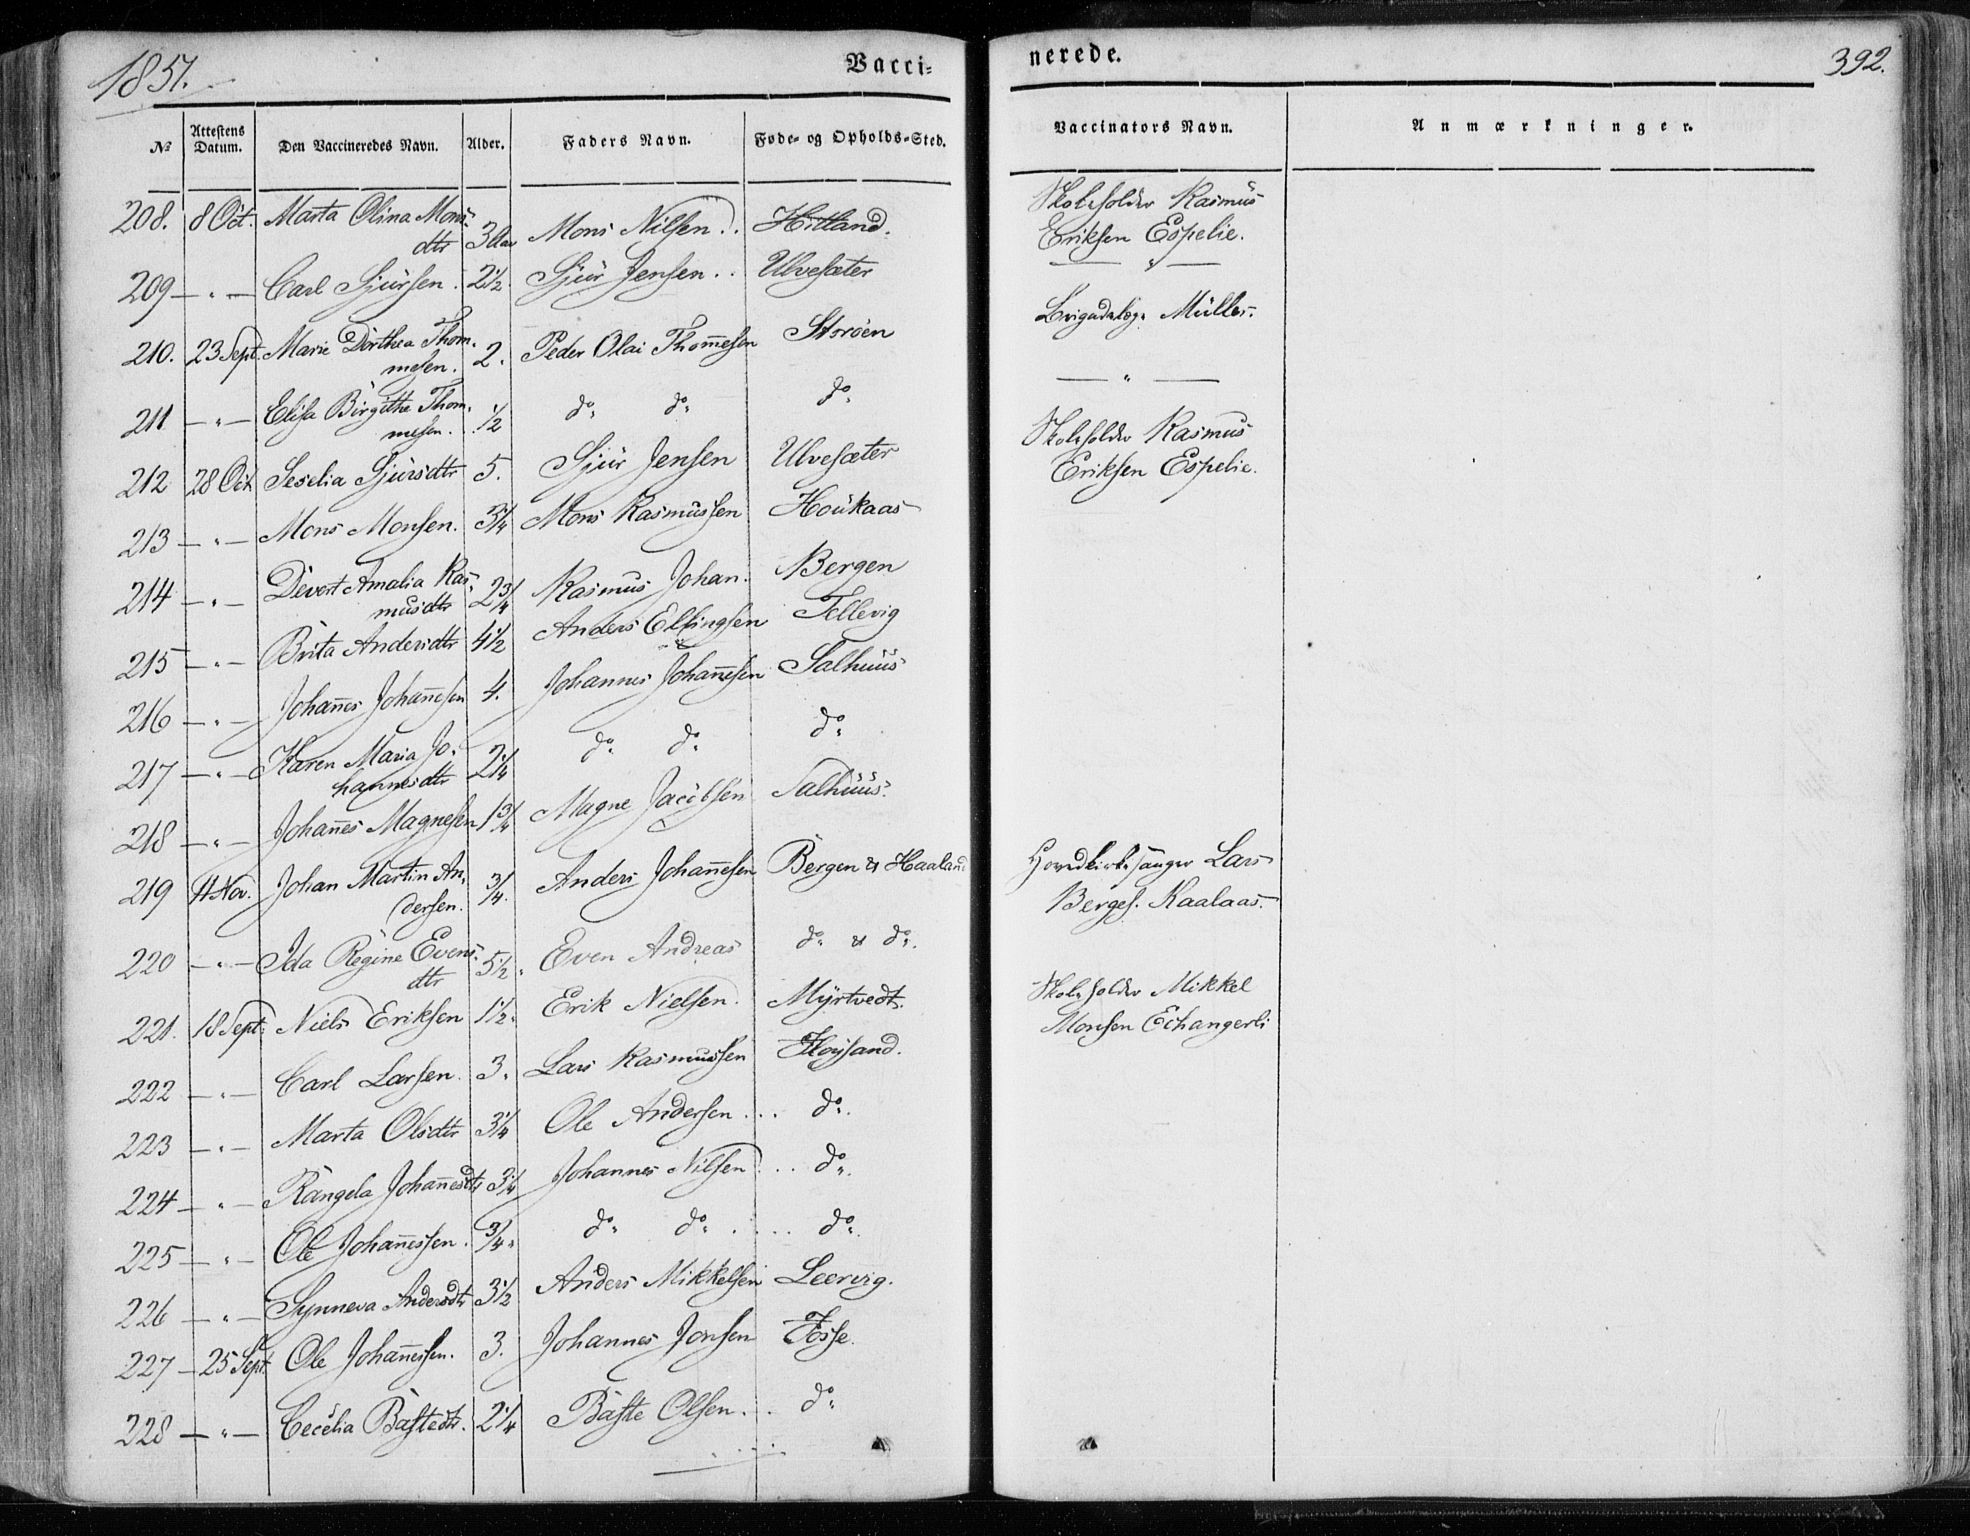 1851.
Vacci-
nerede.
392.
№ Attestens Datum. Den Vaccineredes Navn. Alder. Faders Navn. Føde- og Opholds-Sted. Vaccinators Navn. Anmærkninger.
208. 8 Oct. Marta Olina Mons- 3 Aar Mons Nilsen. Hitland. Skoleholder Rasmus
dtr Eriksen Espelie.
209 — " — Carl Sjursen. 2 1/2 Sjur Jensen. Ulvesæter — " —
210. 23 Sept. Marie Dorthea Thom- 2. Peder Olai Thom̅esen Storöen Brigadelæge Müller.
mesen.
211 — " — Elisa Birgithe Thom- 1/2 do do do — " —
mesen.
212 28 Oct. Seselia Sjursdtr 5. Sjur Jensen Ulvesæter Skoleholder Rasmus
Eriksen Espelie.
213 — " — Mons Monsen. 3/4 Mons Rasmussen Houkaas
214 — " — Devert Amalia Ras- 2 3/4 Rasmus Johan. Bergen
musdtr
215 — " — Brita Andersdtr 4 1/2 Anders Ellingsen Tellevig
216 — " — Johan̅es Johan̅esen 4. Johannes Johan̅esen Salhuus
217 — " — Karen Maria Jo- 2 1/4 do do do
hannesdtr
218 — " — Johan̅es Magnesen 1 3/4 Magne Jacobsen Salhuus.
219 11 Nov. Johan Martin An- 3/4. Anders Johan̅esen Bergen & Haaland Hovedkirkesanger Lars
dersen. Berges. Kaalaas.
220 — " — Ida Regine Evens- 5 1/2 Even Andreas do & do.
dtr
221. 18 Sept. Niels Eriksen 1 1/2 Erik Nielsen. Myrtvedt. Skoleholder Mikkel
Monsen Echangerli
222 — " — Carl Larsen. 3. Lars Rasmussen Høysand.
223 — " — Marta Olsdtr 3 1/4 Ole Andersen ... do.
224 — " — Rangela Johan̅esdtr 3 1/4 Johannes Nilsen ... do.
225 — " — Ole Johan̅essen. 3/4. do do ... do.
226 — " — Synneva Andersdtr 3 1/2 Anders Mikkelsen Leervig.
227 — 25 Sept. Ole Johan̅essen. 3. Johannes Jonsen Fosse.
228 — " — Cecelia Bastedtr. 2 1/4 Baste Olsen. . do